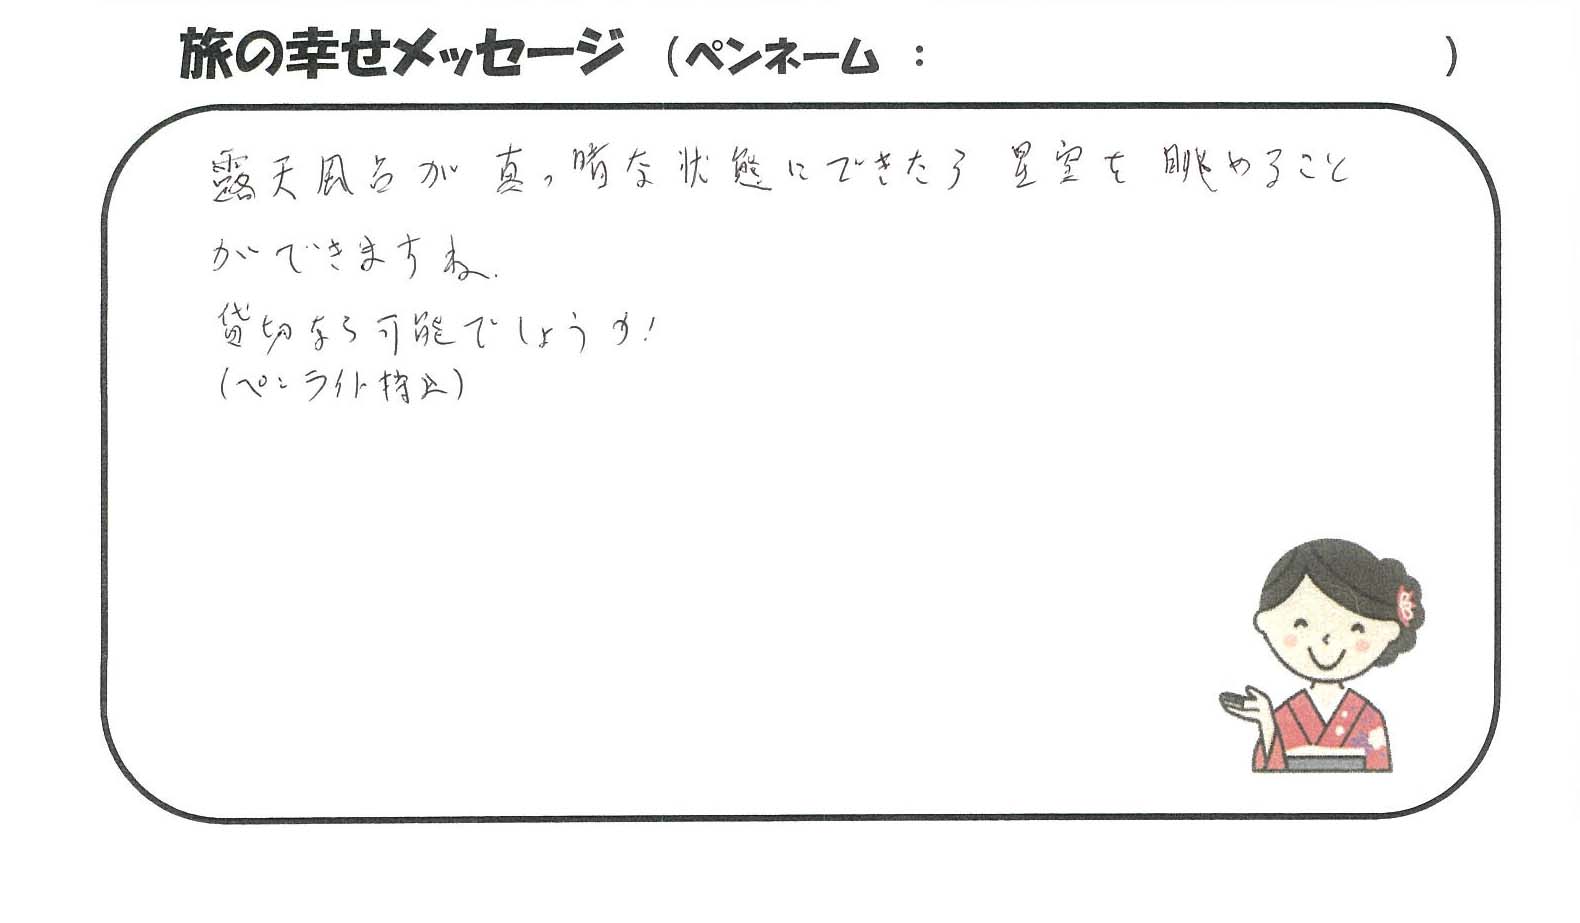 旅の幸せメッセージ (ペンネーム : )
露天風呂が真っ暗な状態にできたら星空を眺めること
ができますね.
貸切なら可能でしょうか!
(ペンライト持込)